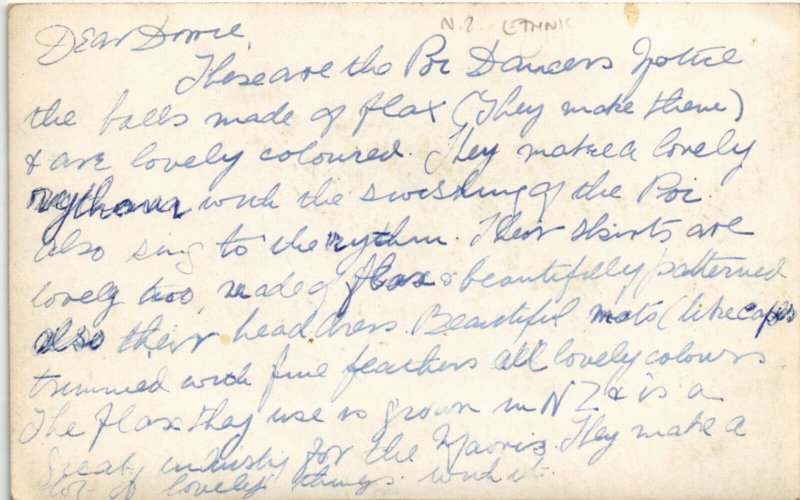 N.Z ETHNIC
Dear Dorrie
These are the Poi Dancers Notice
the balls made of flax (They make them)
& are lovely coloured. They make a lovely
rythmn with the swishing of the Poi.
also sing to the rythm. Their skirts are
lovely too, made of flax & beautifully patterned
also their headdress. Beautiful mats (like capes
trimmed with fine feathers all lovely colours.
The flax they use is grown in NZ & is a
great industry for the Maoris. They make a
lot of lovely things with it.